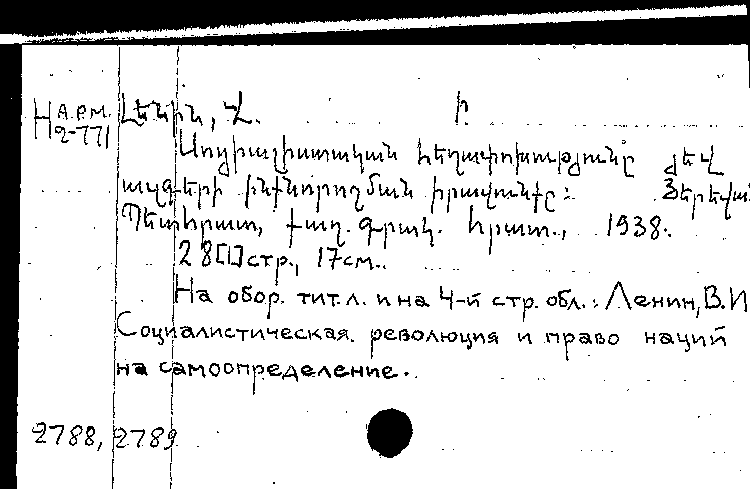 Н А.РМ. Լենին, Վ. Ի.
2-771
Սոցիալիստական հեղափոխությունը յեվ
ազգերի ինքնորոշման իրավունքը: Յերեվան
Պետհրատ, քաղ. գրակ. հրատ., 1938.
28[1]стр., 17см.
На обор. тит. л. и на 4-й стр. обл.: Ленин, В.И
Социалистическая революция и право наций
на самоопределение.
2788, 2789